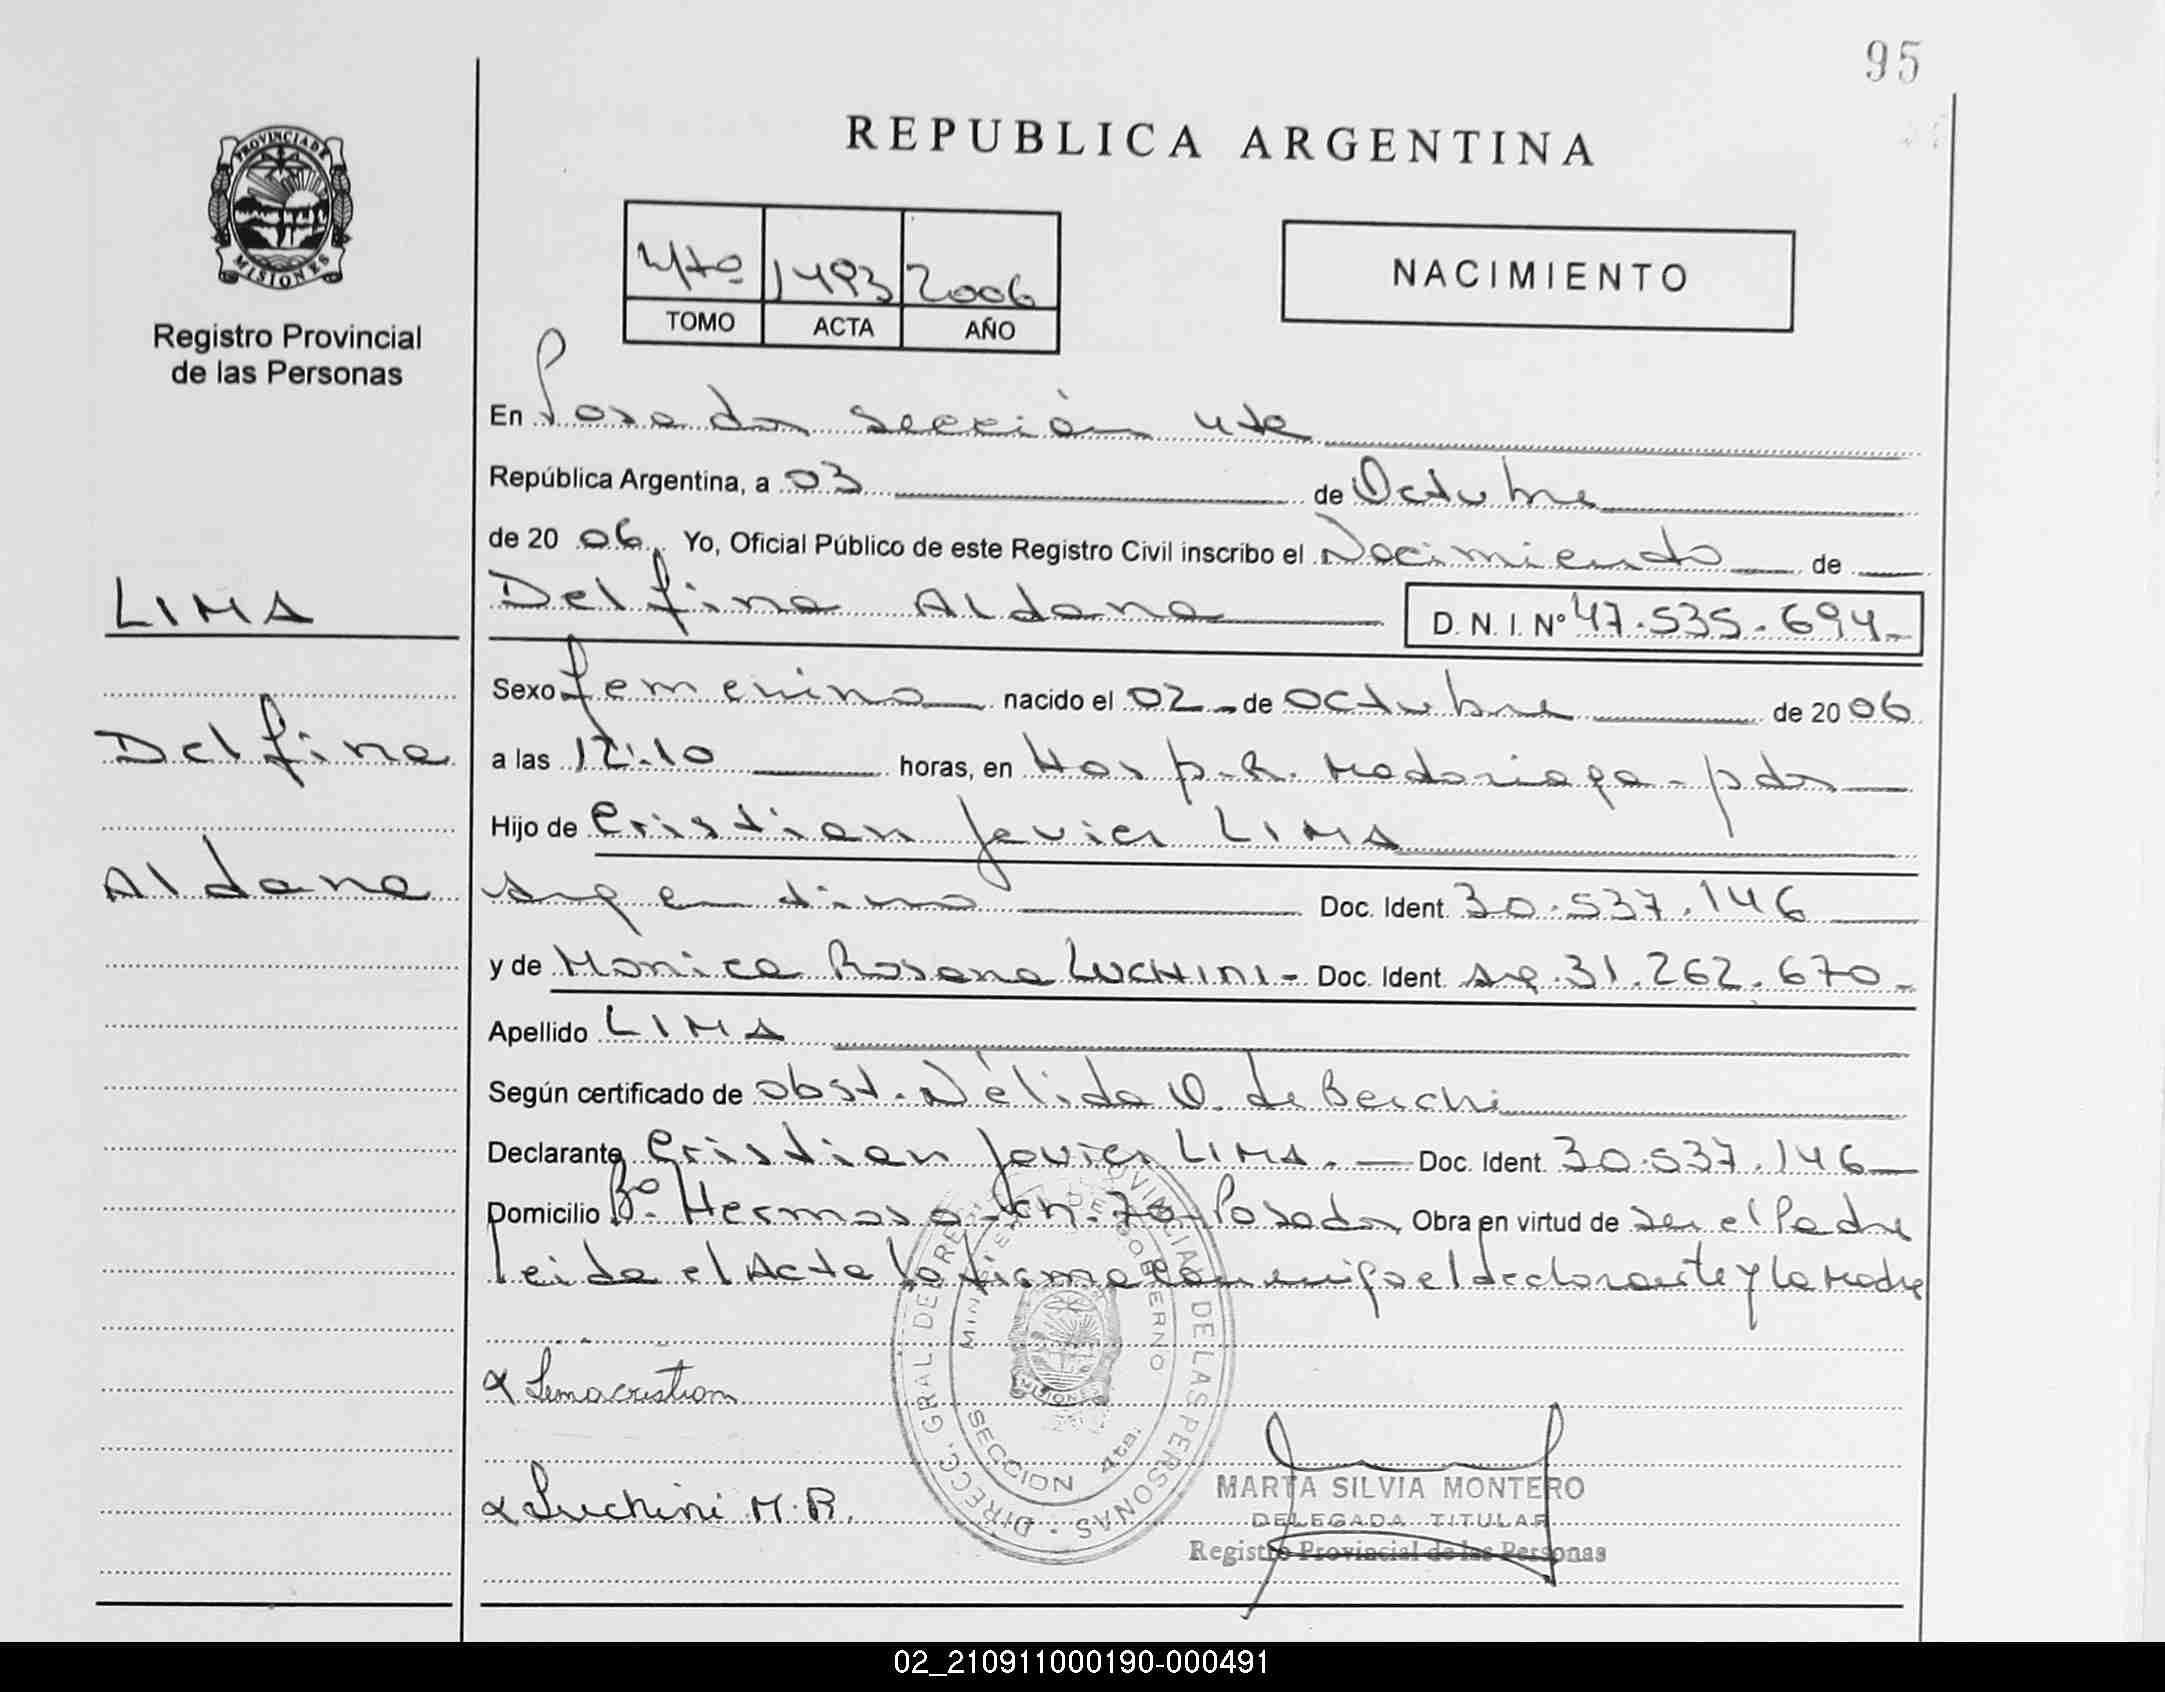 95
PROVINCIA DE
MISIONES
Registro Provincial
de las Personas
REPUBLICA ARGENTINA
4to 1493 2006
TOMO ACTA AÑO
NACIMIENTO
En Posadas sección 4ta
República Argentina, a 03 de Octubre
de 2006. Yo, Oficial Público de este Registro Civil inscribo el Nacimiento de
LIMA
Delfina Aldana D. N. I. Nº 47.535.694-
Sexo femenino nacido el 02 de octubre de 2006
Delfina
a las 12:10 horas, en Hosp. R. Madariaga - pdas
Hijo de Cristian Javier LIMA
Aldana
Argentino Doc. Ident. 30.537.146
y de Monica Rosana LUCHINI - Doc. Ident. Arg. 31.262.670-
Apellido LIMA
Según certificado de obst. Nélida O. de Berchi
Declarante Cristian Javier LIMA. Doc. Ident. 30.537.146
Domicilio Bº. Hermoso - ch. 70 - Posadas Obra en virtud de ser el Padre
leida el Acta la firma con migo el declarante y la Madre
Lima cristian
Luchini M. R.
DIRECC. GRAL. DE REG. PROVINCIAL DE LAS PERSONAS
MINISTERIO DE GOBIERNO
MISIONES
SECCION 4ta.
MARTA SILVIA MONTERO
DELEGADA TITULAR
Registro Provincial de las Personas
02_210911000190-000491